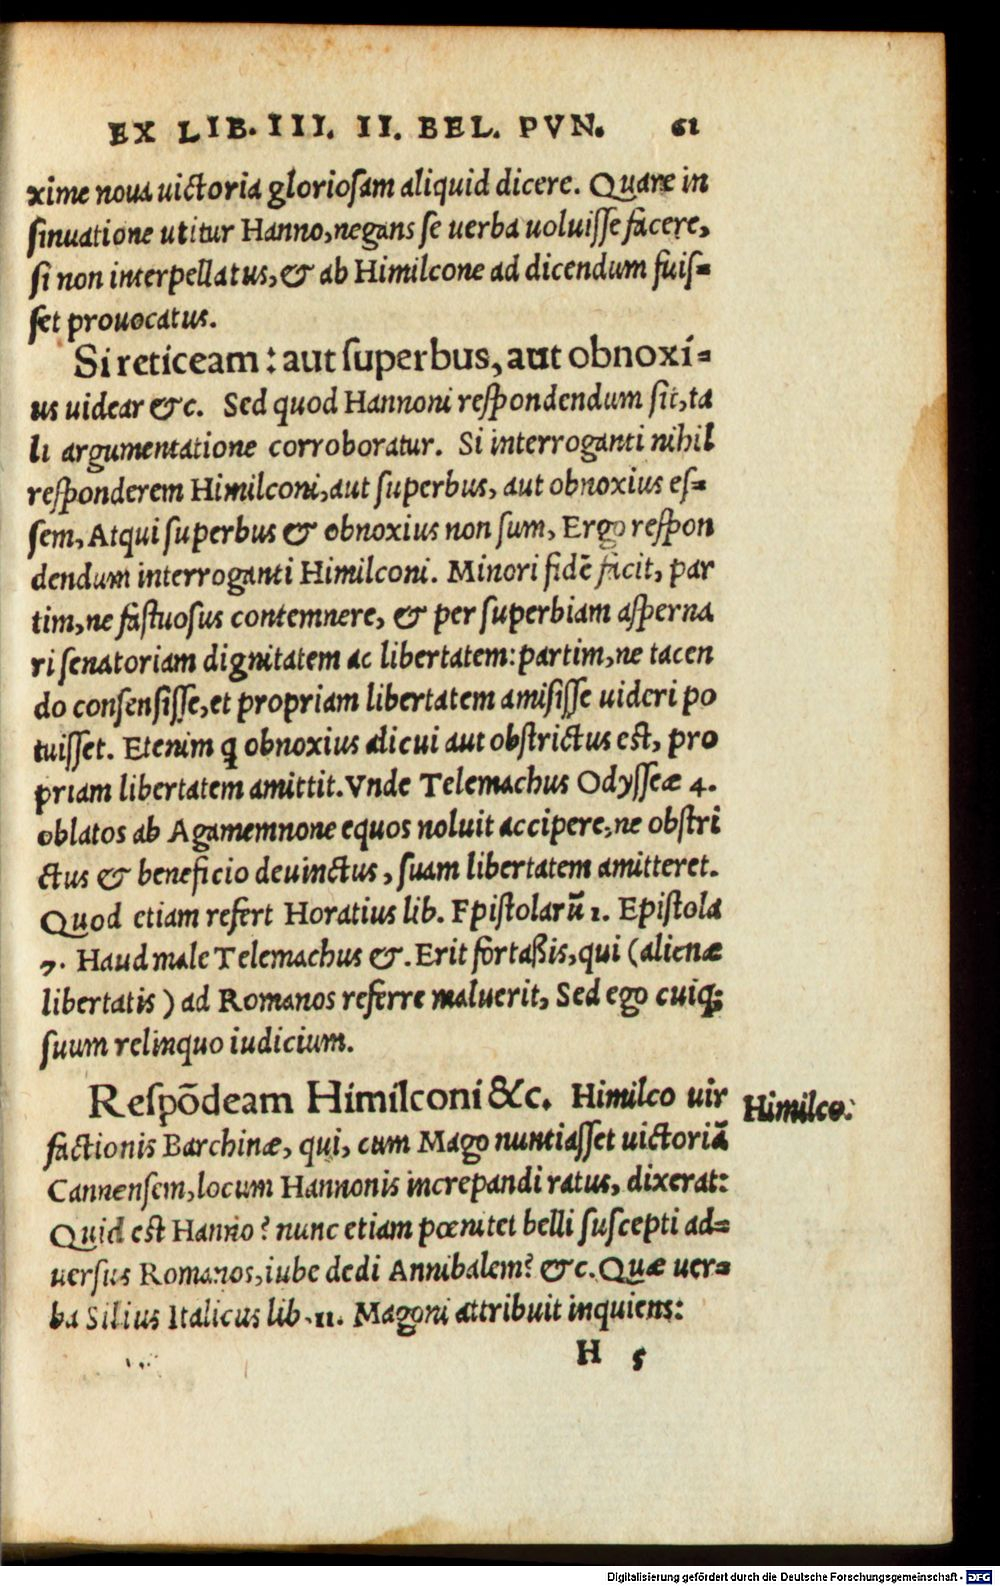 EX LIB. III. II. BEL. PVN. 61
xime noua uictoria gloriosam aliquid dicere. Quare in
sinuatione utitur Hanno, negans se uerba uoluisse facere,
si non interpellatus, & ab Himilcone ad dicendum fuis=
set prouocatus.
Si reticeam: aut superbus, aut obnoxi=
us uidear &c. Sed quod Hannoni respondendum sit, ta
li argumentatione corroboratur. Si interroganti nihil
responderem Himilconi, aut superbus, aut obnoxius es=
sem, Atqui superbus & obnoxius non sum, Ergo respon
dendum interroganti Himilconi. Minori fidē facit, par
tim, ne fastuosus contemnere, & per superbiam asperna
ri senatoriam dignitatem ac libertatem: partim, ne tacen
do consensisse, et propriam libertatem amisisse uideri po
tuisset. Etenim q obnoxius alicui aut obstrictus est, pro
priam libertatem amittit. Vnde Telemachus Odysseæ 4.
oblatos ab Agamemnone equos noluit accipere, ne obstri
ctus & beneficio deuinctus, suam libertatem amitteret.
Quod etiam refert Horatius lib. Epistolarū 1. Epistola
7. Haud male Telemachus &. Erit fortaßis, qui (alienæ
libertatis) ad Romanos referre maluerit, Sed ego cuiq;
suum relinquo iudicium.
Respōdeam Himilconi &c. Himilco uir
Himilco.
factionis Barchinæ, qui, cum Mago nuntiasset uictoriā
Cannensem, locum Hannonis increpandi ratus, dixerat:
Quid est Hanno? nunc etiam pœnitet belli suscepti ad=
uersus Romanos, iube dedi Annibalem? &c. Quæ uer=
ba Silius Italicus lib. 11. Magoni attribuit inquiens:
H 5
Digitalisierung gefördert durch die Deutsche Forschungsgemeinschaft - DFG